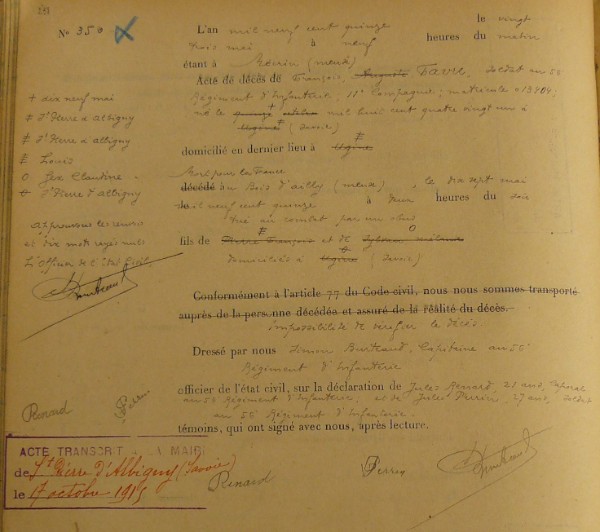 N° 350
L'an mil neuf cent quinze le vingt
trois mai à neuf heures du matin
étant à (Meuse)
Acte de décès de François, Auguste Favre, soldat au 55
Régiment d'Infanterie, 11e Compagnie; matricule
né le mil huit cent quatre vingt un à
Ugine (Savoie)
domicilié en dernier lieu à Ugine
Mort pour la France
décédé au Bois d'Ailly (Meuse), le dix sept mai
mil neuf cent quinze à heures du soir
tué au combat par un obus
fils de Pierre François et de
domiciliés à Ugine (Savoie)
Conformément à l'article 77 du Code civil, nous nous sommes transporté
auprès de la personne décédée et assuré de la réalité du décès.
impossibilité de vérifier le décès
Dressé par nous Simon Burteaud, Capitaine au 55e
Régiment d'Infanterie
officier de l'état civil, sur la déclaration de Jules Renard, 21 ans, Caporal
au 55 Régiment d'Infanterie, et de Jules Perrin, 27 ans, soldat
au 55e Régiment d'Infanterie.
témoins, qui ont signé avec nous, après lecture.
+ dix neuf mai
≠ St Pierre d'Albigny
≠ St Pierre d'Albigny
Louis
O Gex Claudine
St Pierre d'Albigny
Approuvés les renvois
et dix mots rayés nuls
L'officier de l'Etat Civil
Renard
Perrin
ACTE TRANSCRIT À LA MAIRIE
de St Pierre d'Albigny (Savoie)
le 17 octobre 1915
Renard
Perrin